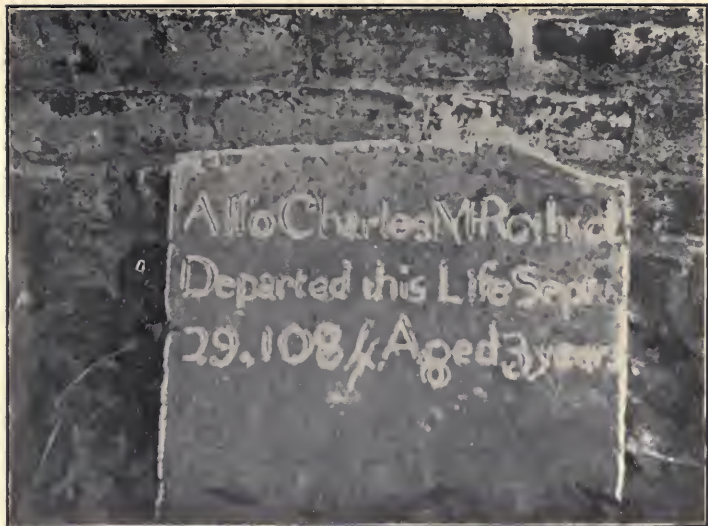 Allo Charles McRoth
Departed this Life Sept
29.1084. Aged 3 years